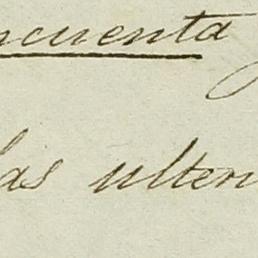 ncuenta
las ulteri